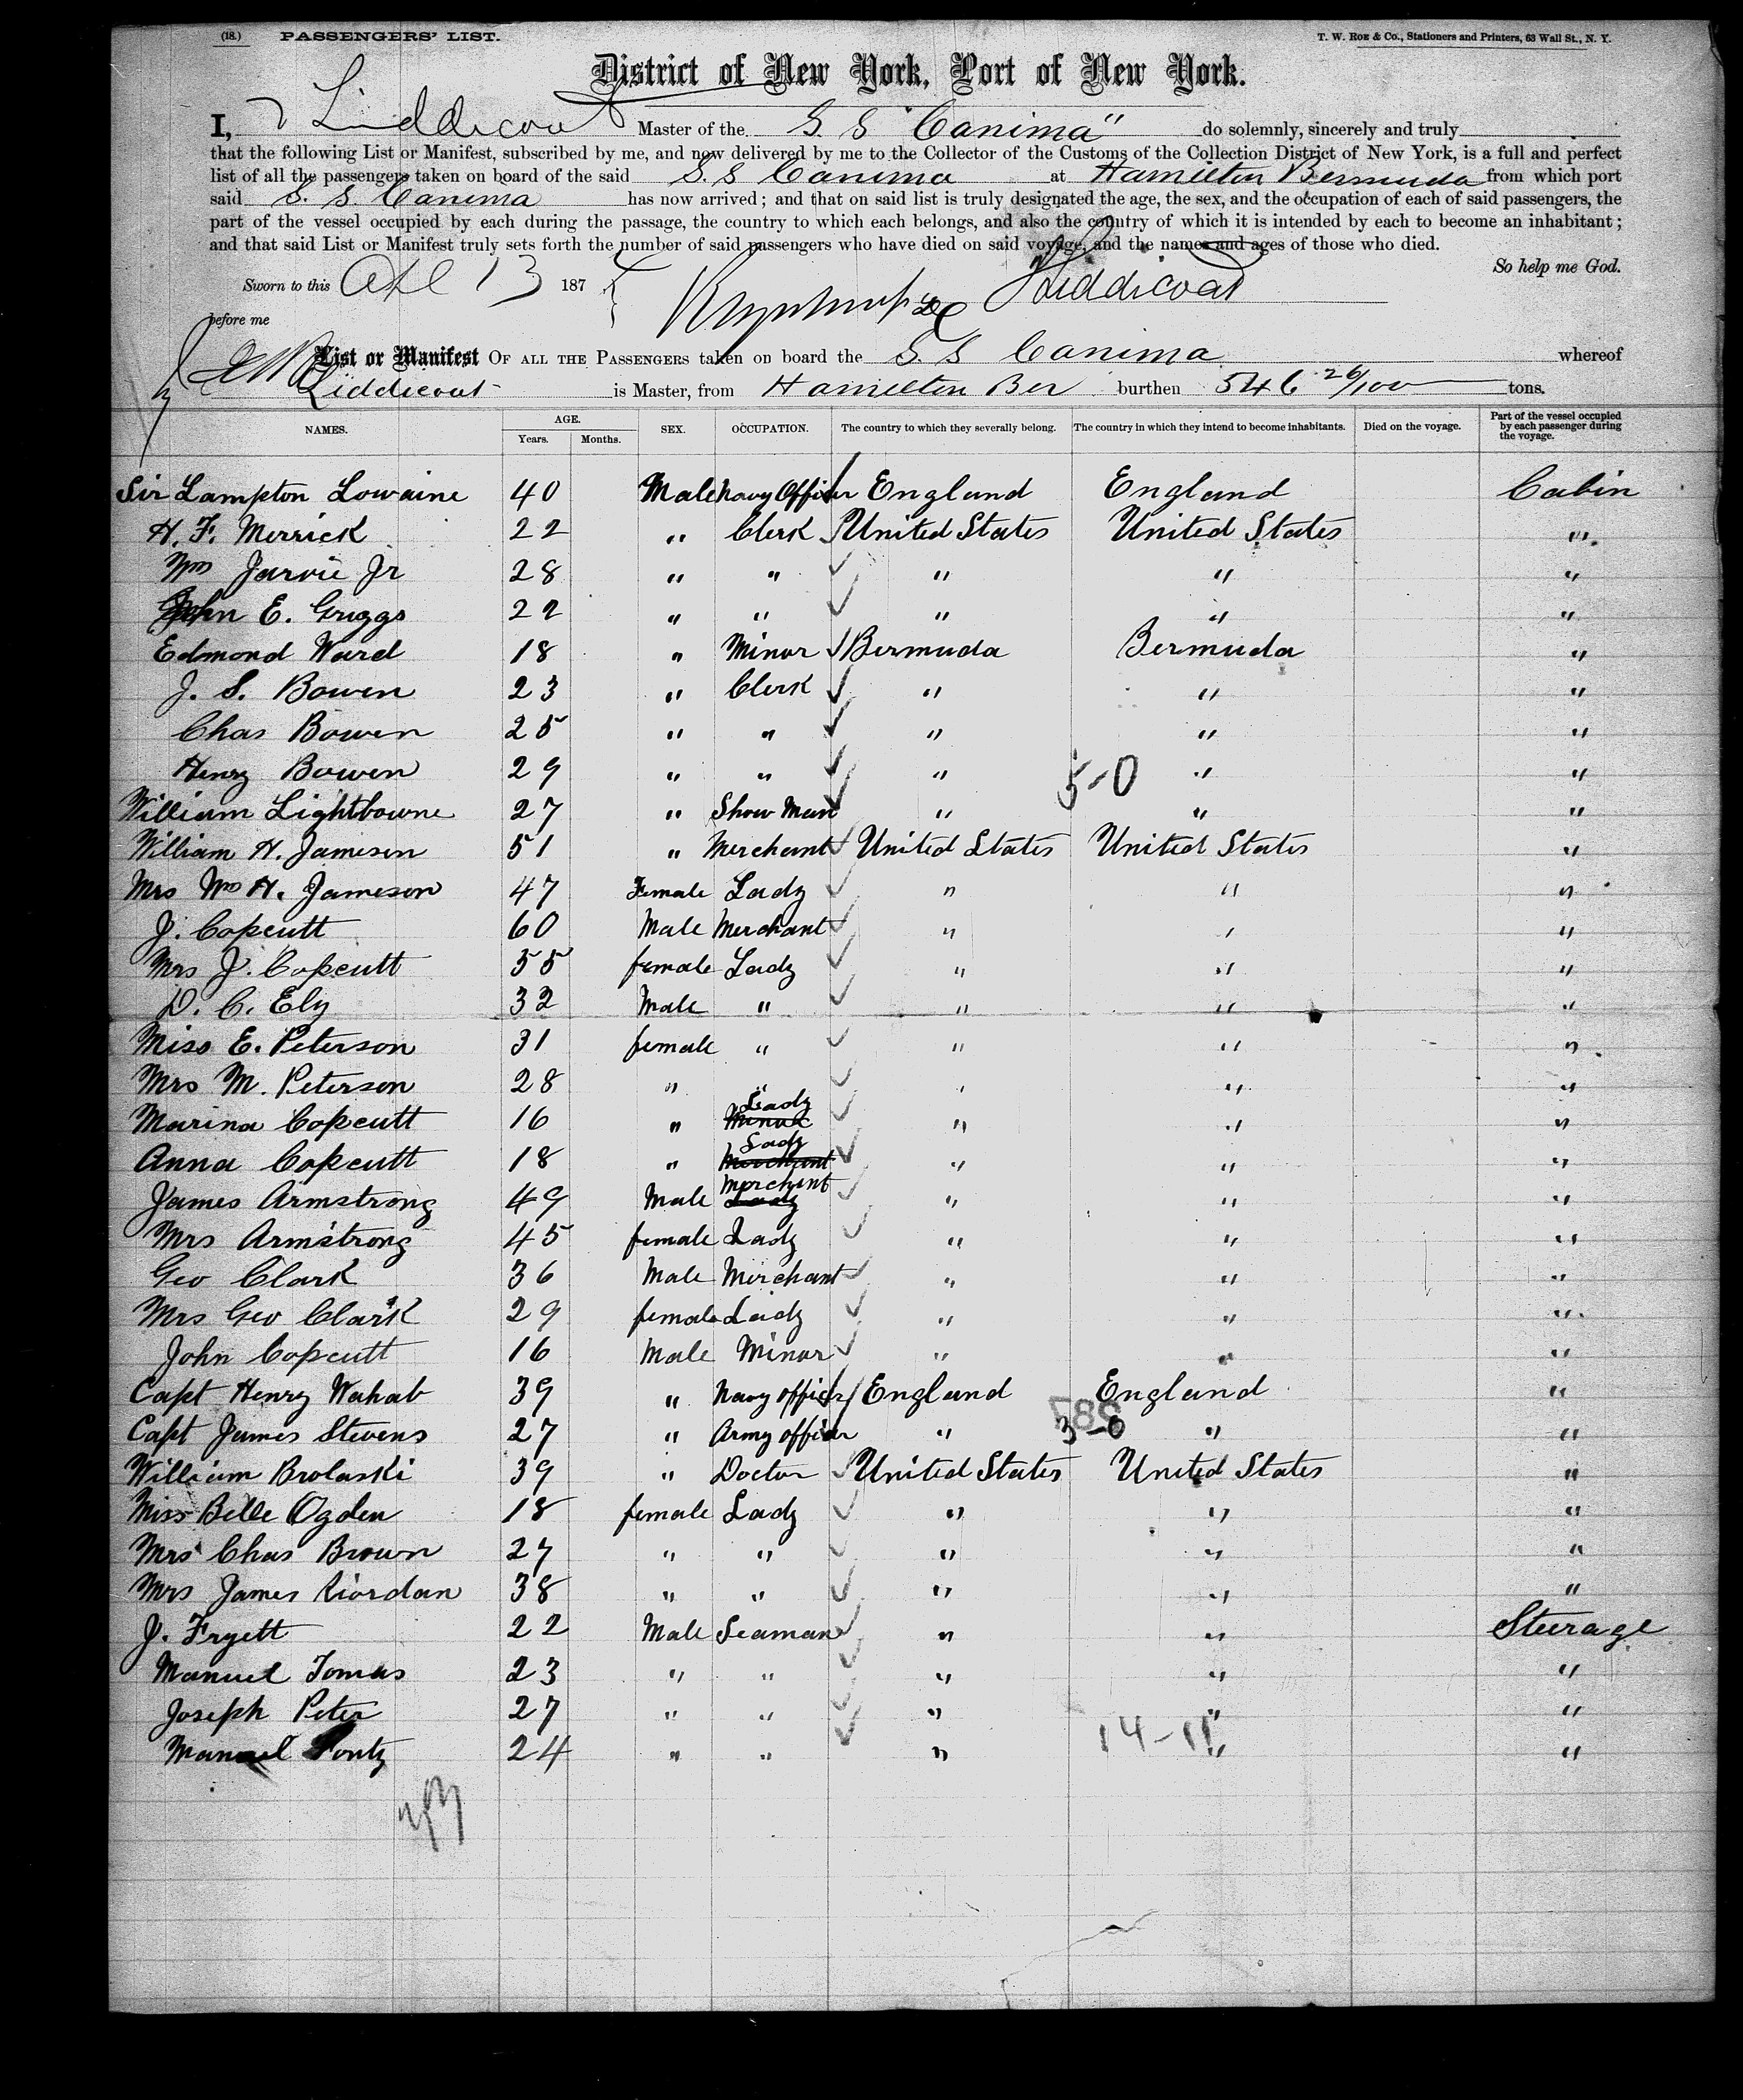 (18.) PASSENGERS' LIST. T. W. ROE & Co., Stationers and Printers, 63 Wall St., N. Y.
District of New York, Port of New York.
I, Liddicoat Master of the S. S "Canima" do solemnly, sincerely and truly
that the following List or Manifest, subscribed by me, and now delivered by me to the Collector of the Customs of the Collection District of New York, is a full and perfect
list of all the passengers taken on board of the said S. S Canima at Hamilton Bermuda from which port
said S. S. Canima has now arrived; and that on said list is truly designated the age, the sex, and the occupation of each of said passengers, the
part of the vessel occupied by each during the passage, the country to which each belongs, and also the country of which it is intended by each to become an inhabitant;
and that said List or Manifest truly sets forth the number of said passengers who have died on said voyage, and the names and ages of those who died.
So help me God.
Sworn to this 13 187 Liddicoat
before me
List or Manifest OF ALL THE PASSENGERS taken on board the S. S Canima whereof
Liddicoat is Master, from Hamilton Ber burthen 546 26/100 tons.
NAMES. AGE. Years. Months. SEX. OCCUPATION. The country to which they severally belong. The country in which they intend to become inhabitants. Died on the voyage. Part of the vessel occupied by each passenger during the voyage.
Sir Lampton Lowaine 40 Male Navy Officer England England Cabin
H. F. Merrick 22 " Clerk United States United States "
Wm Jarvie Jr 28 " " " " "
John E. Griggs 22 " " " " "
Edmond Ward 18 " Minor Bermuda Bermuda "
J. S. Bowen 23 " Clerk " " "
Chas Bowen 25 " " " " "
Henry Bowen 29 " " " 5-0 " "
William Lightbowne 27 " Show Man " " "
William H. Jameson 51 " Merchant United States United States "
Mrs Wm H. Jameson 47 Female Lady " " "
J. Copcutt 60 Male Merchant " " "
Mrs J. Copcutt 55 female Lady " " "
D. C. Ely 32 Male " " " "
Miss E. Peterson 31 female " " " "
Mrs M. Peterson 28 " " " " "
Marina Copcutt 16 " Minor Lady " " "
Anna Copcutt 18 " Merchant Lady " " "
James Armstrong 49 Male Lady Merchant " " "
Mrs Armstrong 45 female Lady " " "
Geo Clark 36 Male Merchant " " "
Mrs Geo Clark 29 female Lady " " "
John Copcutt 16 Male Minor " " "
Capt Henry Wahab 39 " Navy officer England England "
Capt James Stevens 27 " Army officer " 3-0 " "
William Brolaski 39 " Doctor United States United States "
Miss Belle Ogden 18 female Lady " " "
Mrs Chas Brown 27 " " " " "
Mrs James Riordan 38 " " " " "
J. Fryett 22 Male Seaman " " Steerage
Manuel Tomas 23 " " " " "
Joseph Peter 27 " " " " "
Manuel 24 " " " 14-11 " "